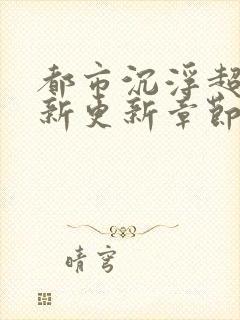 都市沉浮超
新更新章节
晴穹